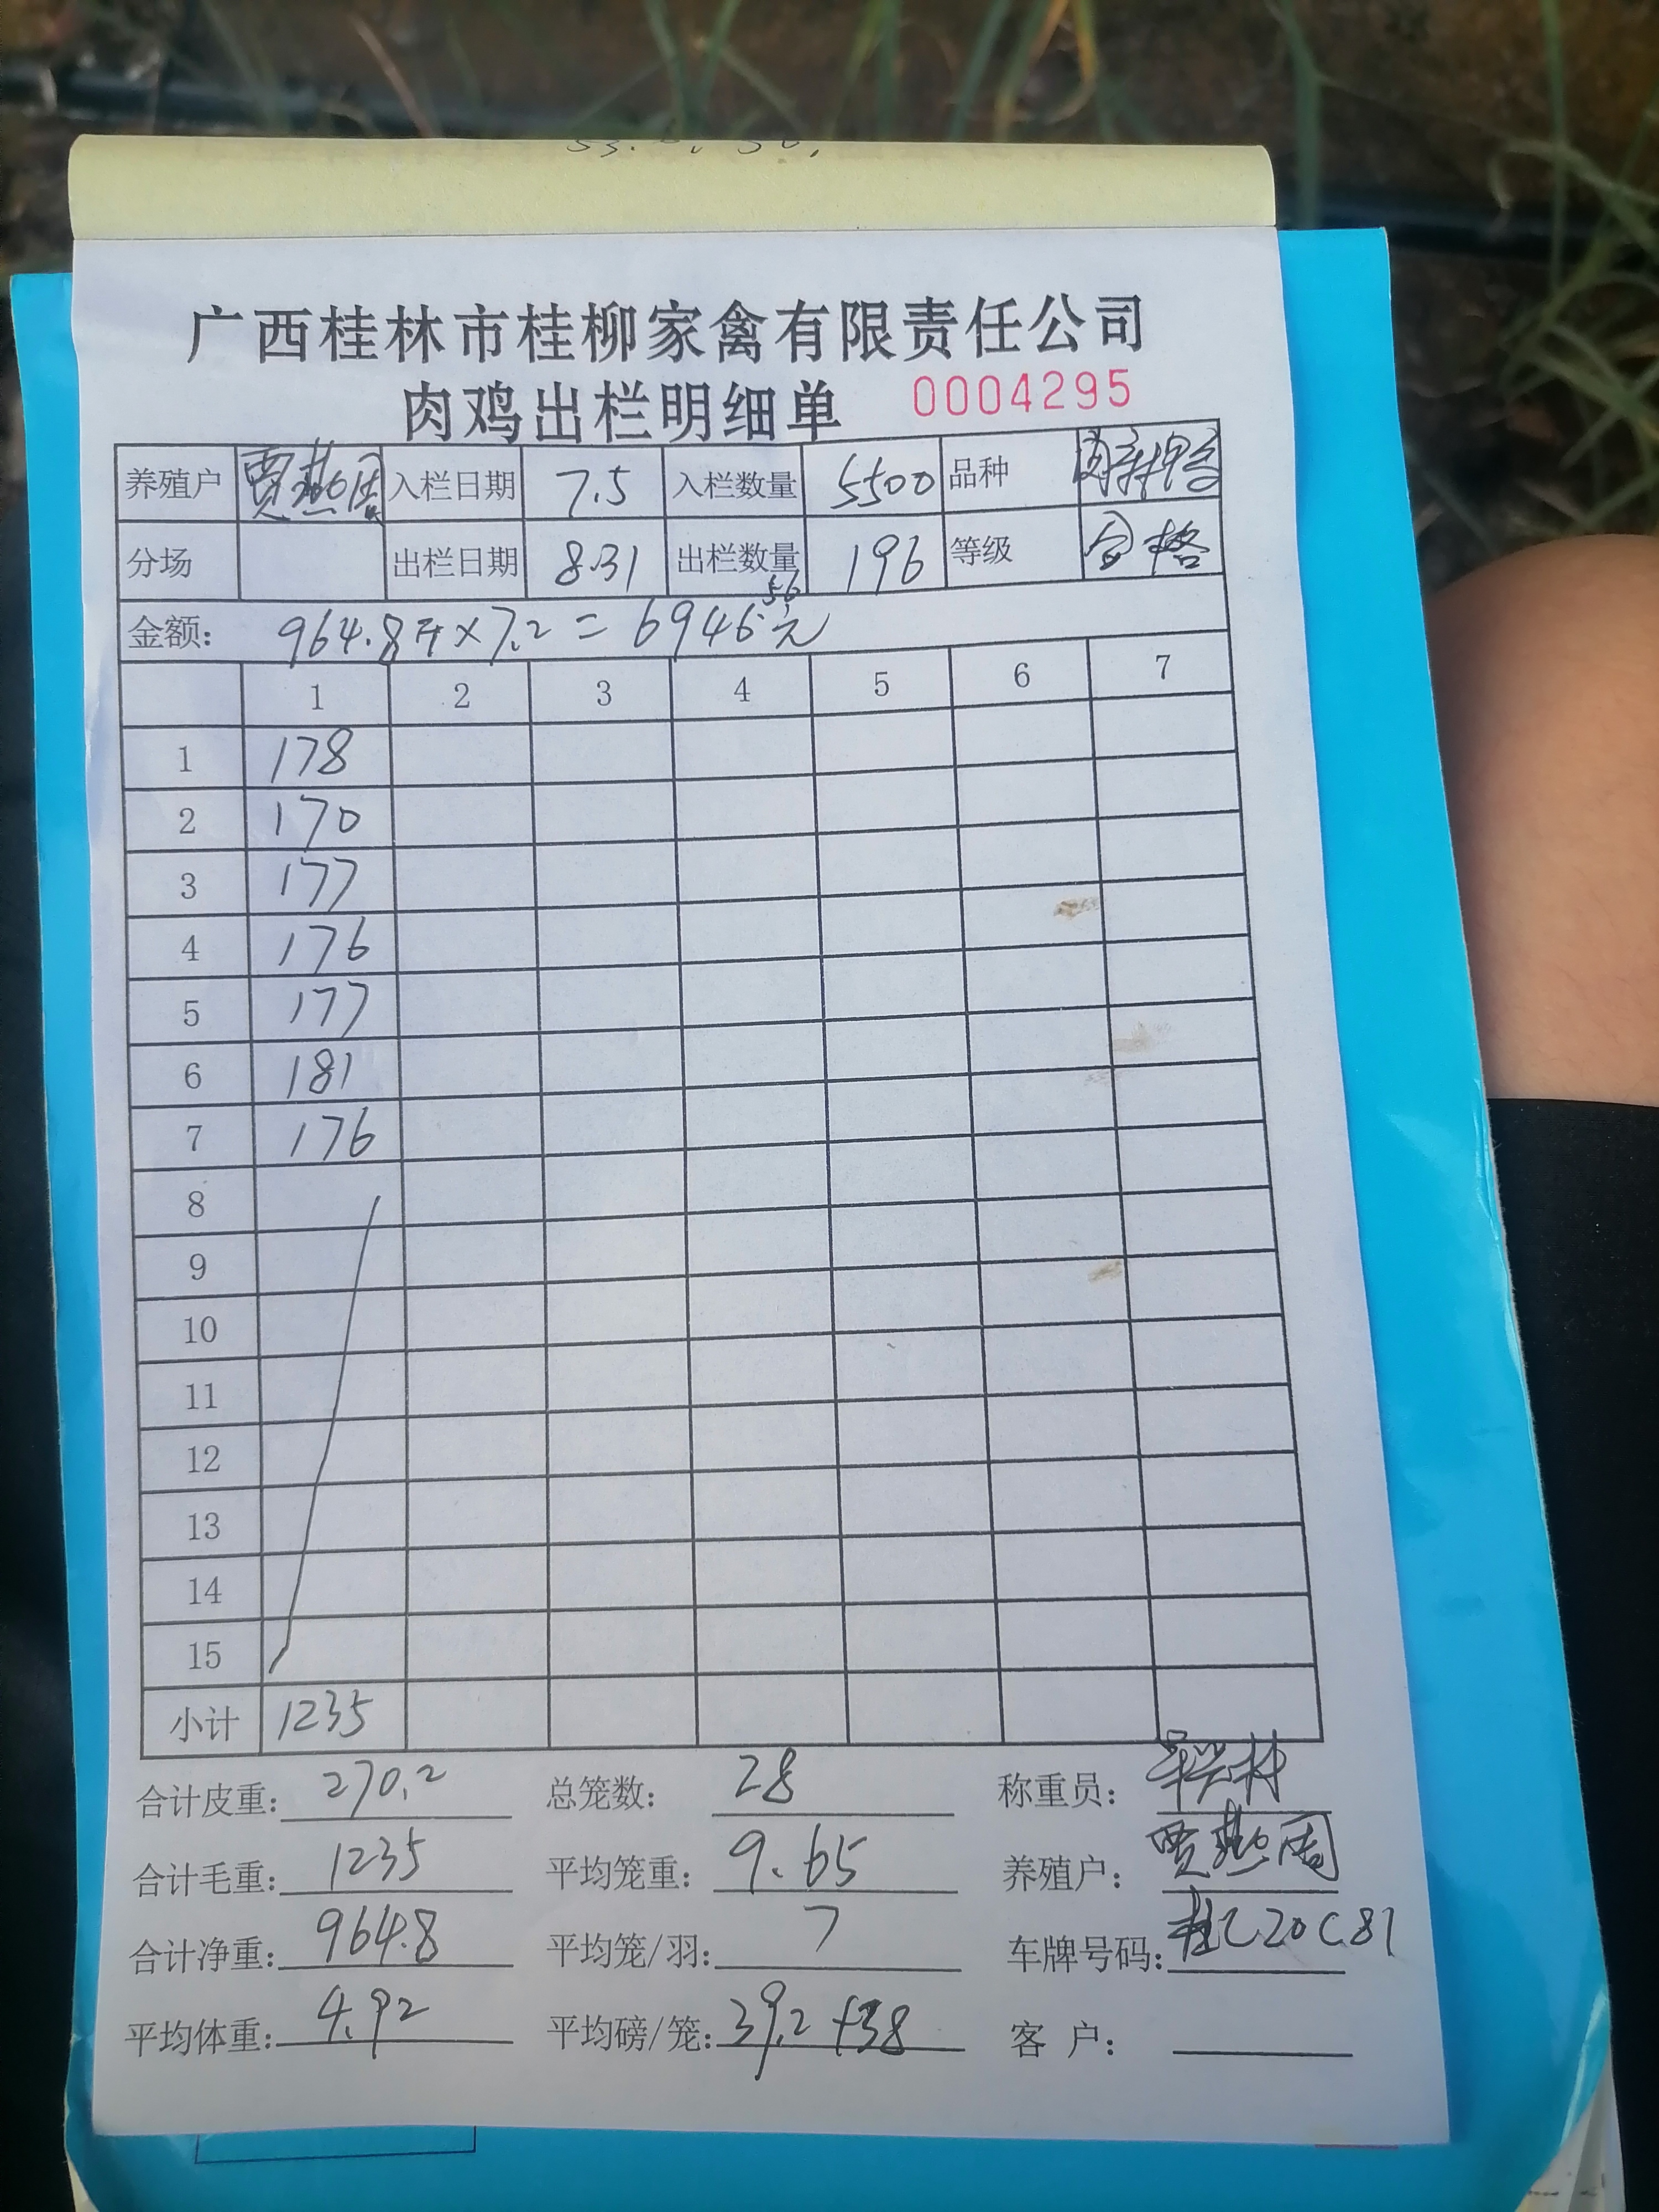 广西桂林市桂柳家禽有限责任公司
肉鸡出栏明细单 0004295
养殖户 贾燕周 入栏日期 7.5 入栏数量 5500 品种
分场 出栏日期 8.31 出栏数量 196 等级 合格
金额: 964.8斤×7.2=6946.56元
1 2 3 4 5 6 7
1 178
2 170
3 177
4 176
5 177
6 181
7 176
8
9
10
11
12
13
14
15
小计 1235
合计皮重: 270.2 总笼数: 28 称重员:
合计毛重: 1235 平均笼重: 9.65 养殖户: 贾燕周
合计净重: 964.8 平均笼/羽: 7 车牌号码: 桂C20C81
平均体重: 4.92 平均磅/笼: 39.2 +38 客 户: